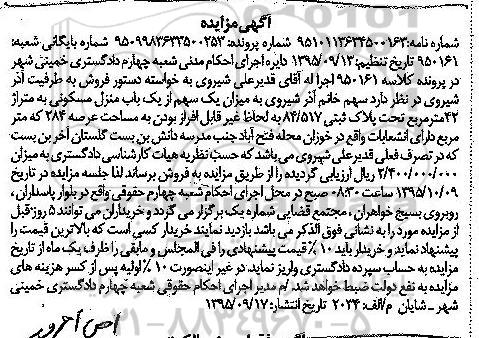 آگهی مزایده
شماره نامه: ۹۵۱۰۱۱۳۶۳۴۵۰۰۱۶۳ شماره پرونده: ۹۵۰۹۹۸۳۶۳۴۵۰۰۲۵۳ شماره بایگانی شعبه:
۹۵۰۱۶۱ تاریخ تنظیم: ۱۳۹۵/۰۹/۱۳ دایره اجرای احکام مدنی شعبه چهارم دادگستری خمینی شهر
در پرونده کلاسه ۹۵۰۱۶۱ اجرا له آقای قدیرعلی شیروی به خواسته دستور فروش به طرفیت آذر
شیروی در نظر دارد سهم خانم آذر شیروی به میزان یک سهم از یک باب منزل مسکونی به متراژ
۴۲مترمربع تحت پلاک ثبتی ۸۴/۵۱۷ به لحاظ غیر قابل افراز بودن به مساحت عرصه ۲۸۴ که متر
مربع دارای انشعابات واقع در خوزان محله فتح آباد جنب مدرسه دانش بن بست گلستان آخر بن بست
که در تصرف فعلی قدیرعلی شیروی می باشد که حسب نظریه هیات کارشناسی دادگستری به میزان
۲/۴۰۰/۰۰۰/۰۰۰ ریال ارزیابی گردیده را از طریق مزایده به فروش برساند لذا جلسه مزایده در تاریخ
۱۳۹۵/۱۰/۰۹ ساعت ۰۸:۳۰ صبح در محل اجرای احکام شعبه چهارم حقوقی واقع در بلوار پاسداران ،
روبروی بسیج خواهران ، مجتمع قضایی شماره یک برگزار می گردد و خریداران می توانند ۵ روز قبل
از مزایده مورد را به نشانی فوق الذکر می باشد بازدید نمایند خریدار کسی است که بالاترین قیمت را
پیشنهاد نماید و خریدار باید ۱۰٪ قیمت پیشنهادی را فی المجلس و مابقی را ظرف یک ماه از تاریخ
مزایده به حساب سپرده دادگستری واریز نماید، در غیر اینصورت ۱۰٪ اولیه پس از کسر هزینه های
مزایده به نفع دولت ضبط خواهد شد. /م مدیر اجرای احکام حقوقی شعبه چهارم دادگستری خمینی
شهر ـ شایان م/الف: ۲۰۳۴ تاریخ انتشار: ۱۳۹۵/۰۹/۱۷
۰۲۱-۸۸۳۴۹۶۷۰-۵